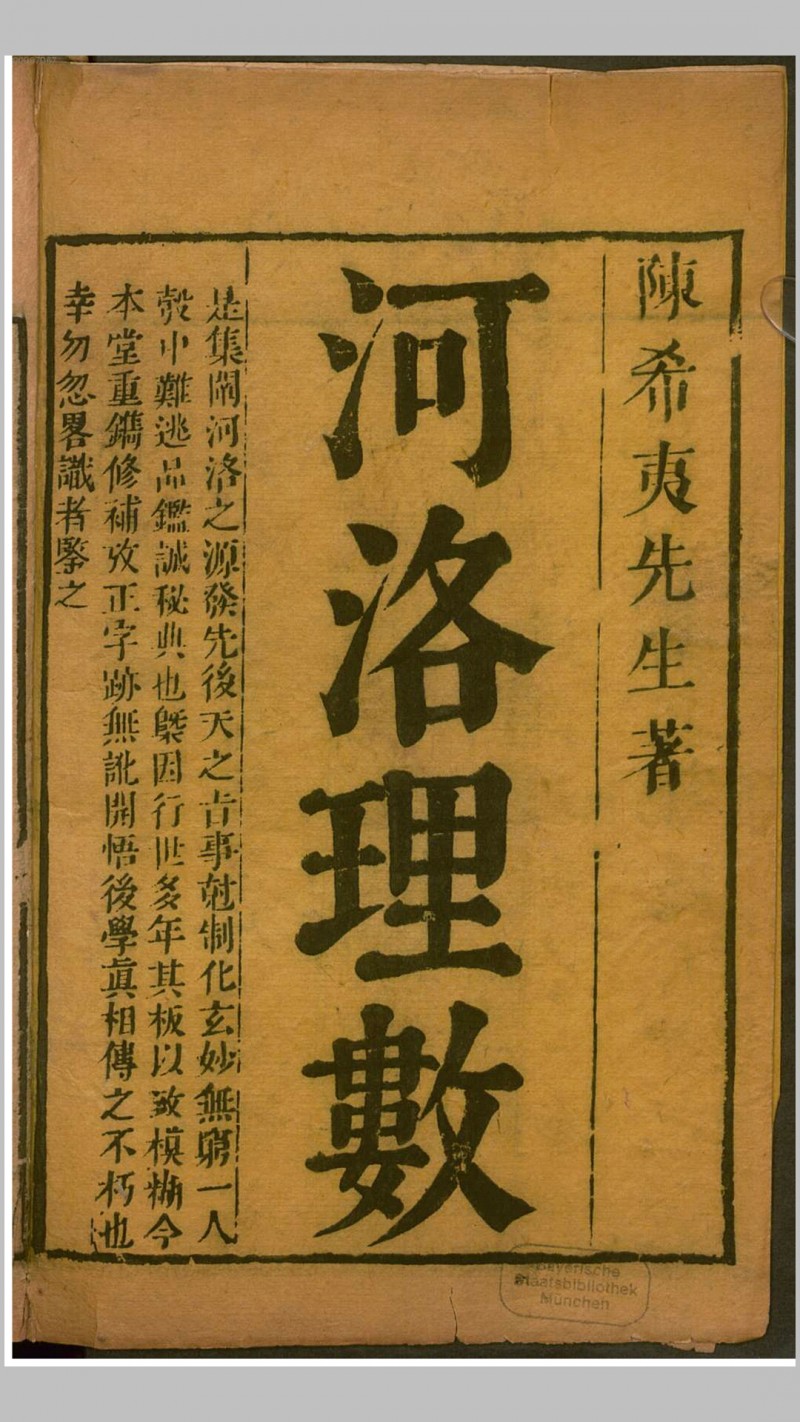 陳希夷先生著
河洛理數
是集闡河洛之源發先後天之吉事尅制化玄妙無窮一人
彀中難逃品鑑誠秘典也槩因行世多年其板以致模糊今
本堂重鐫修補攷正字跡無訛開悟後學眞相傳之不朽也
幸勿忽畧識者鑒之
Bayerische
Staatsbibliothek
München